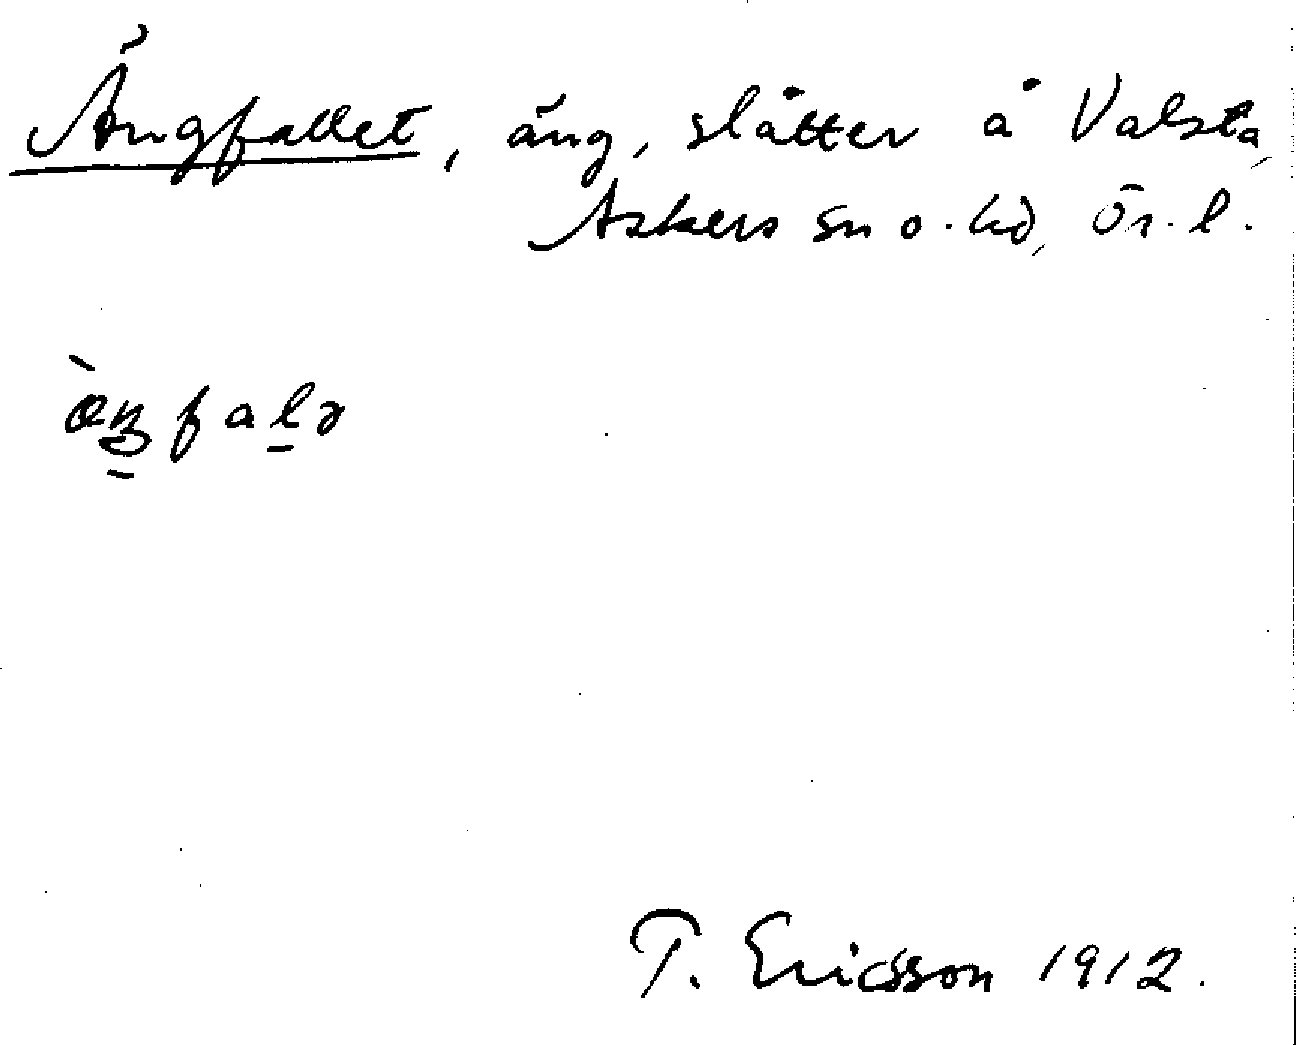 Ängfallet, äng, slåtter å Valsta,
Askers sn o. hd, Ör. l.
æŋfalə
T. Ericsson 1912.